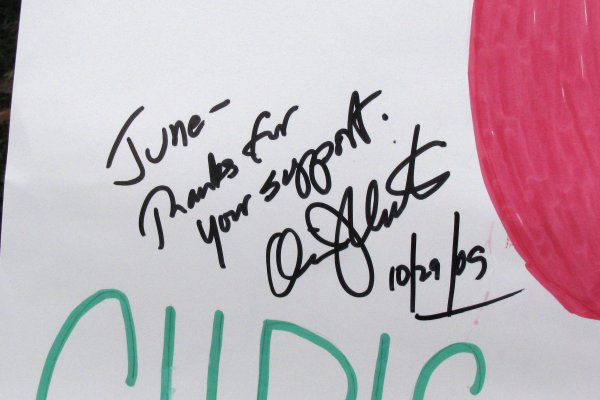 June-
Thanks for
your support.
10/29/09
CHRIS